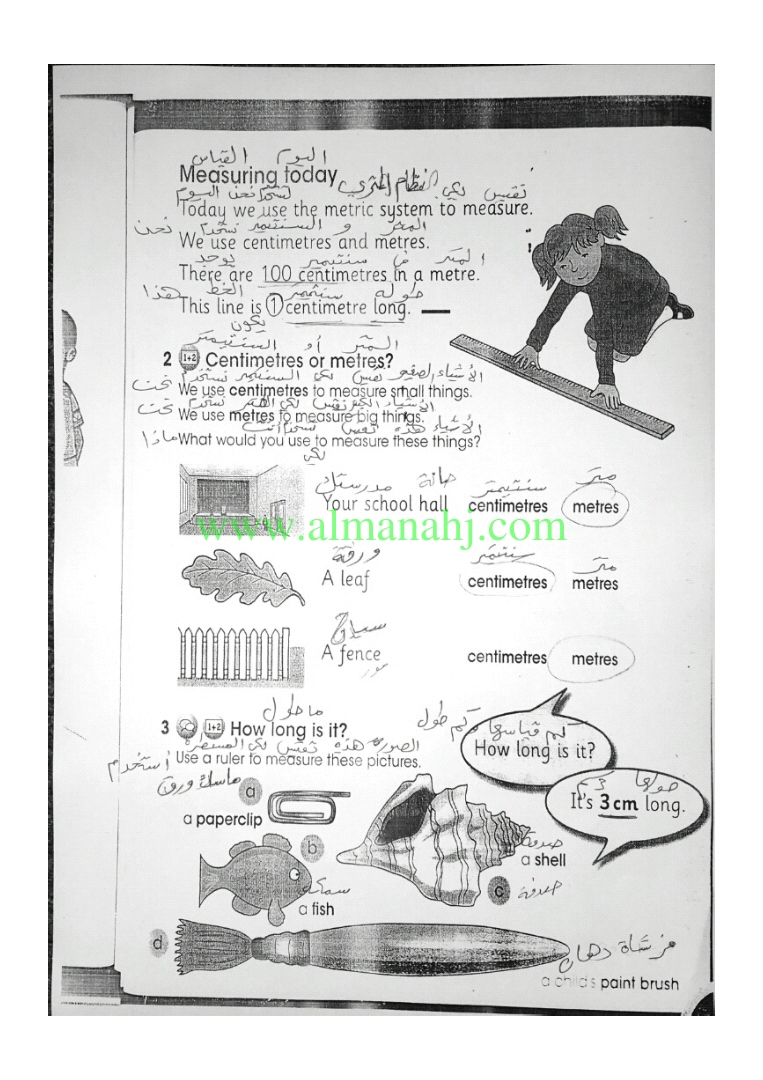 اليوم القياس
Measuring today
تقيس لكي النظام المتري
نستخدم نحن اليوم
Today we use the metric system to measure.
المتر و السنتيمتر نستخدم نحن
We use centimetres and metres.
المتر في سنتيمتر يوجد
There are 100 centimetres in a metre.
طوله سنتيمتر الخط هذا
This line is 1 centimetre long.
يكون
المتر أو السنتيمتر
2 1+2 Centimetres or metres?
الأشياء الصغير نقيس لكي السنتيمتر نستخدم نحن
We use centimetres to measure small things.
We use metres to measure big things.
الأشياء هذه تقيس
ماذا
What would you use to measure these things?
لكي
صالة مدرستك سنتيمتر متر
Your school hall centimetres metres
www.almanahj.com
ورقة سنتيمتر متر
A leaf centimetres metres
سياج
A fence centimetres metres
سور
ما طول
3 1+2 How long is it?
الصورة هذه تقيس لكي المسطرة استخدم
Use a ruler to measure these pictures.
كم قياسها وكم طول
How long is it?
طولها 3 سم
It's 3 cm long.
ماسك ورق
a
a paperclip
b
سمكة
a fish
صدفة
a shell
c صدفة
d
فرشاة دهان
a child's paint brush